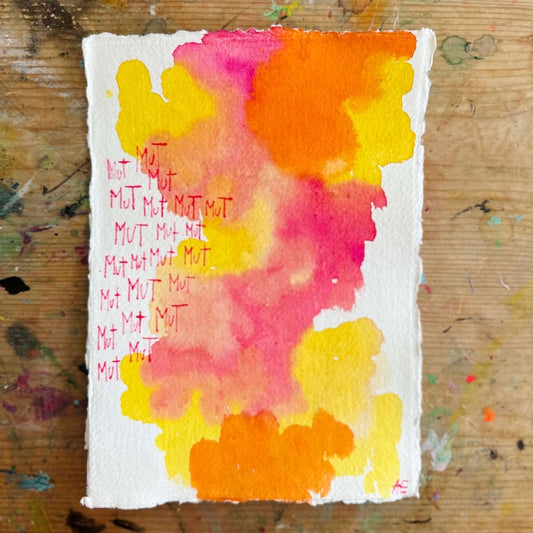 Mut MuT
Mut
MuT Mut MuT MuT
MuT Mut Mut
Mut Mut Mut MuT
Mut MuT Mut
Mut Mut MuT
Mut MuT
AE